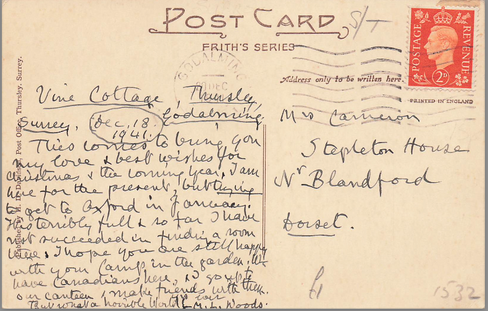 POST CARD
FRITH'S SERIES
S/T
GODALMING
DEC
POSTAGE
REVENUE
2D
Address only to be written here.
PRINTED IN ENGLAND
Post Office, Thursley, Surrey.
Vine Cottage, Thursley,
Godalming
Surrey. Dec. 18.
1941.
This comes to bring you
my love & best wishes for
Christmas & the coming year. I am
here for the present, but trying
to get to Oxford in January.
It is terribly full & so far I have
not succeeded in finding a room
there. I hope you are still happy
with your camp in the garden. We
have Canadians here, & I go to
our canteen, & make friends with them.
But what a horrible World!
M.L. Woods.
Mrs Cameron
Stepleton House
Nr Blandford
Dorset.
£1
1532